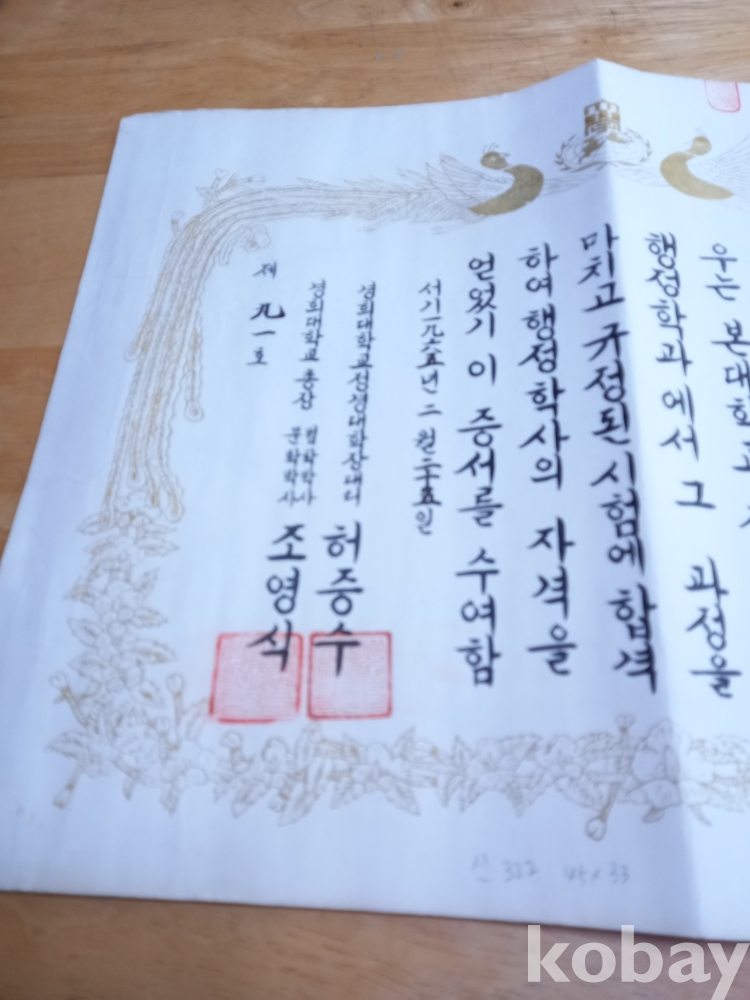 우는 본대학교
행정학과에서 그 과정을
마치고 규정된 시험에 합격
하여 행정학사의 자격을
얻었기 이 증서를 수여함
서기一九六五년 二월 二十五일
허증수
경희대학교 총장 법학학사 문학학사 조영식
제 九一호
신 322 45x33
kobay